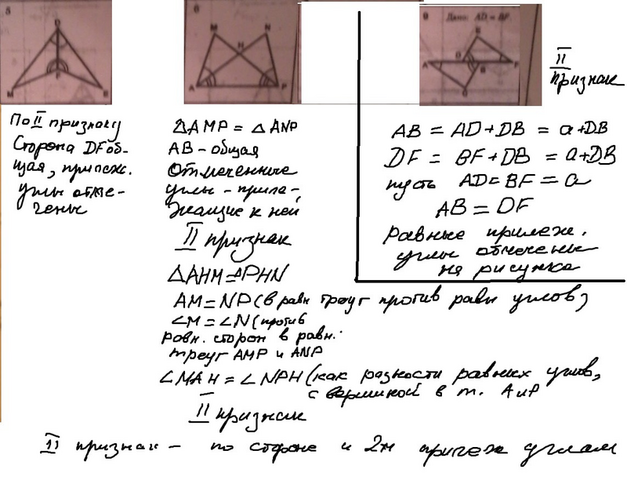 5
По II признаку
Сторона DF об-
щая, прилеж.
углы отме-
чены
6
M
N
H
A
P
△AMP = △ANP
AB - общая
Отмеченные
углы - приле-
жащие к ней
II признак
△AHM = △PHN
AM = NP (в равн треуг против равн углов)
∠M = ∠N (против
равн. сторон в равн.
треуг AMP и ANP
∠MAH = ∠NPH (как разности равных углов,
с вершиной в т. A и P
II признак
9
Дано: AD = BF.
II
признак
AB = AD + DB = a + DB
DF = BF + DB = a + DB
пусть AD = BF = a
AB = DF
равные прилеж.
углы отмечены
на рисунке
II признак - по стороне и 2м прилеж углам